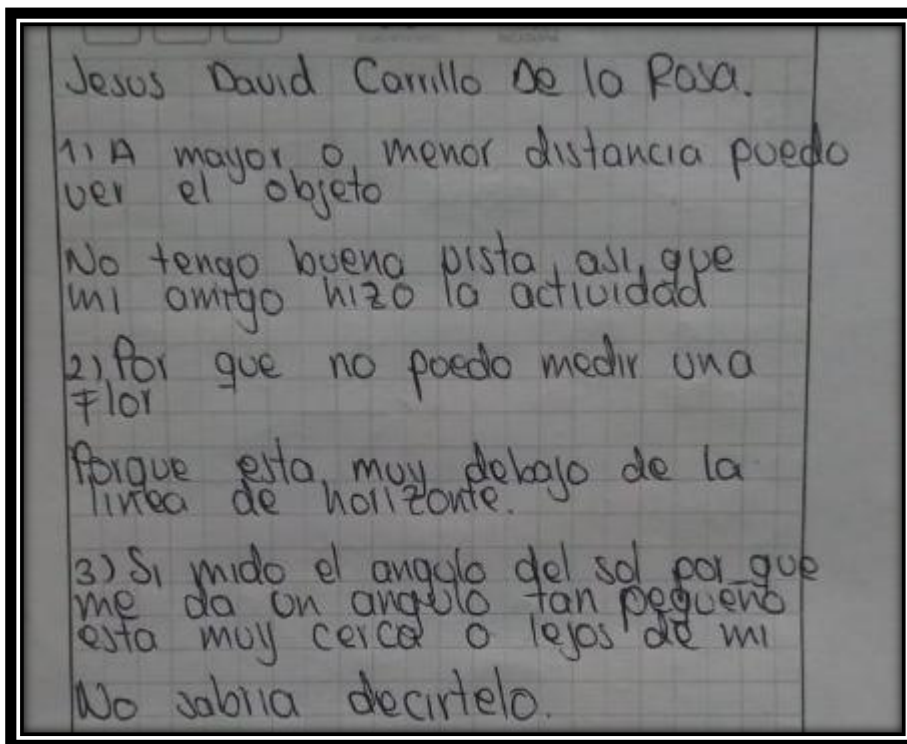 Jesus David Carrillo De la Rosa.
1) A mayor o menor distancia puedo
ver el objeto
No tengo buena vista, asi, que
mi amigo hizo la actividad
2) Por que no puedo medir una
Flor
Porque esta muy debajo de la
linea de horizonte.
3) Si mido el angulo del sol por que
me da un angulo tan pequeño
esta muy cerca o lejos de mi
No sabria decirtelo.